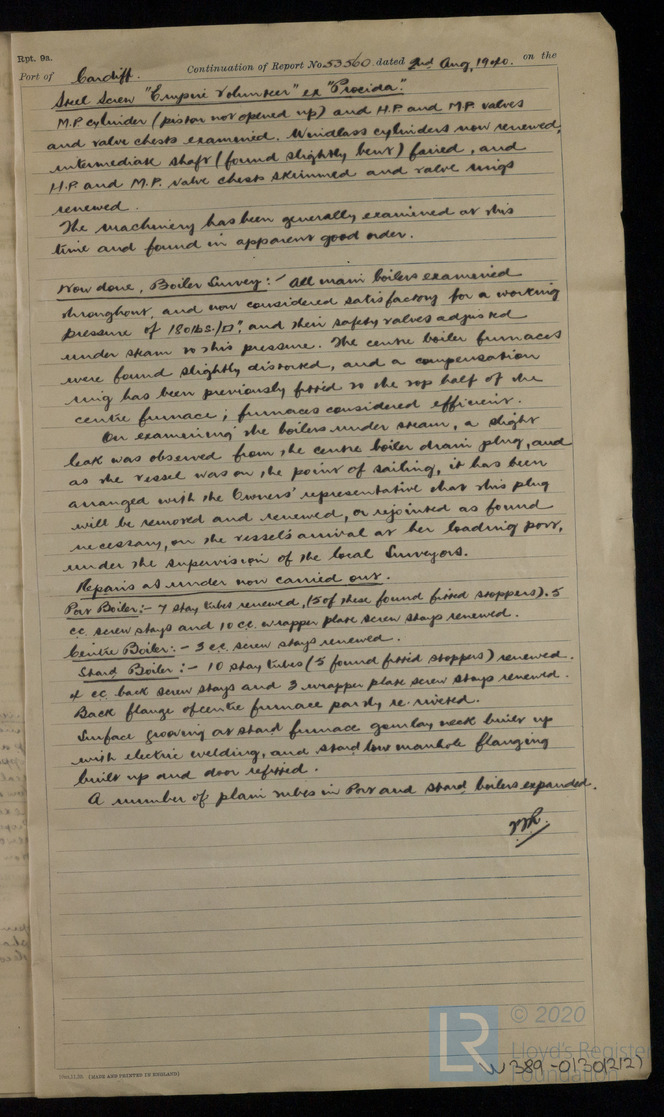 Rpt. 9a.
Port of Cardiff. Continuation of Report No. 53560 dated 2nd Aug, 1940. on the
Steel Screw "Empire Volunteer" ex "Procida."
M.P. cylinder (piston not opened up) and H.P. and M.P. valves
and valve chests examined. Windlass cylinders now renewed,
intermediate shaft (found slightly bent) faired, and
H.P. and M.P. valve chests skimmed and valve rings
renewed.
The machinery has been generally examined at this
time and found in apparent good order.
Now done, Boiler Survey:- All main boilers examined
throughout, and now considered satisfactory for a working
pressure of 180 lbs./□", and their safety valves adjusted
under steam to this pressure. The centre boiler furnaces
were found slightly distorted, and a compensation
ring has been previously fitted to the top half of the
centre furnace; furnaces considered efficient.
On examining the boilers under steam, a slight
leak was observed from the centre boiler drain plug, and
as the vessel was on the point of sailing, it has been
arranged with the Owners' representative that this plug
will be removed and renewed, or rejointed as found
necessary, on the vessel's arrival at her loading port,
under the supervision of the local Surveyors.
Repairs as under now carried out.
Port Boiler:- 7 stay tubes renewed, (5 of these found fitted stoppers). 5
cc. screw stays and 10 cc. wrapper plate screw stays renewed.
Centre Boiler:- 3 cc. screw stays renewed.
Starb Boiler:- 10 stay tubes (5 found fitted stoppers) renewed.
4 cc. back screw stays and 3 wrapper plate screw stays renewed.
Back flange of centre furnace partly re-riveted.
Surface grooving at starb furnace gourlay neck built up
with electric welding, and starb low manhole flanging
built up and door refitted.
A number of plain tubes in Port and starb boilers expanded.
(MADE AND PRINTED IN ENGLAND)
LR
© 2020
Lloyd's Register
Foundation
W389-0130(2/2)